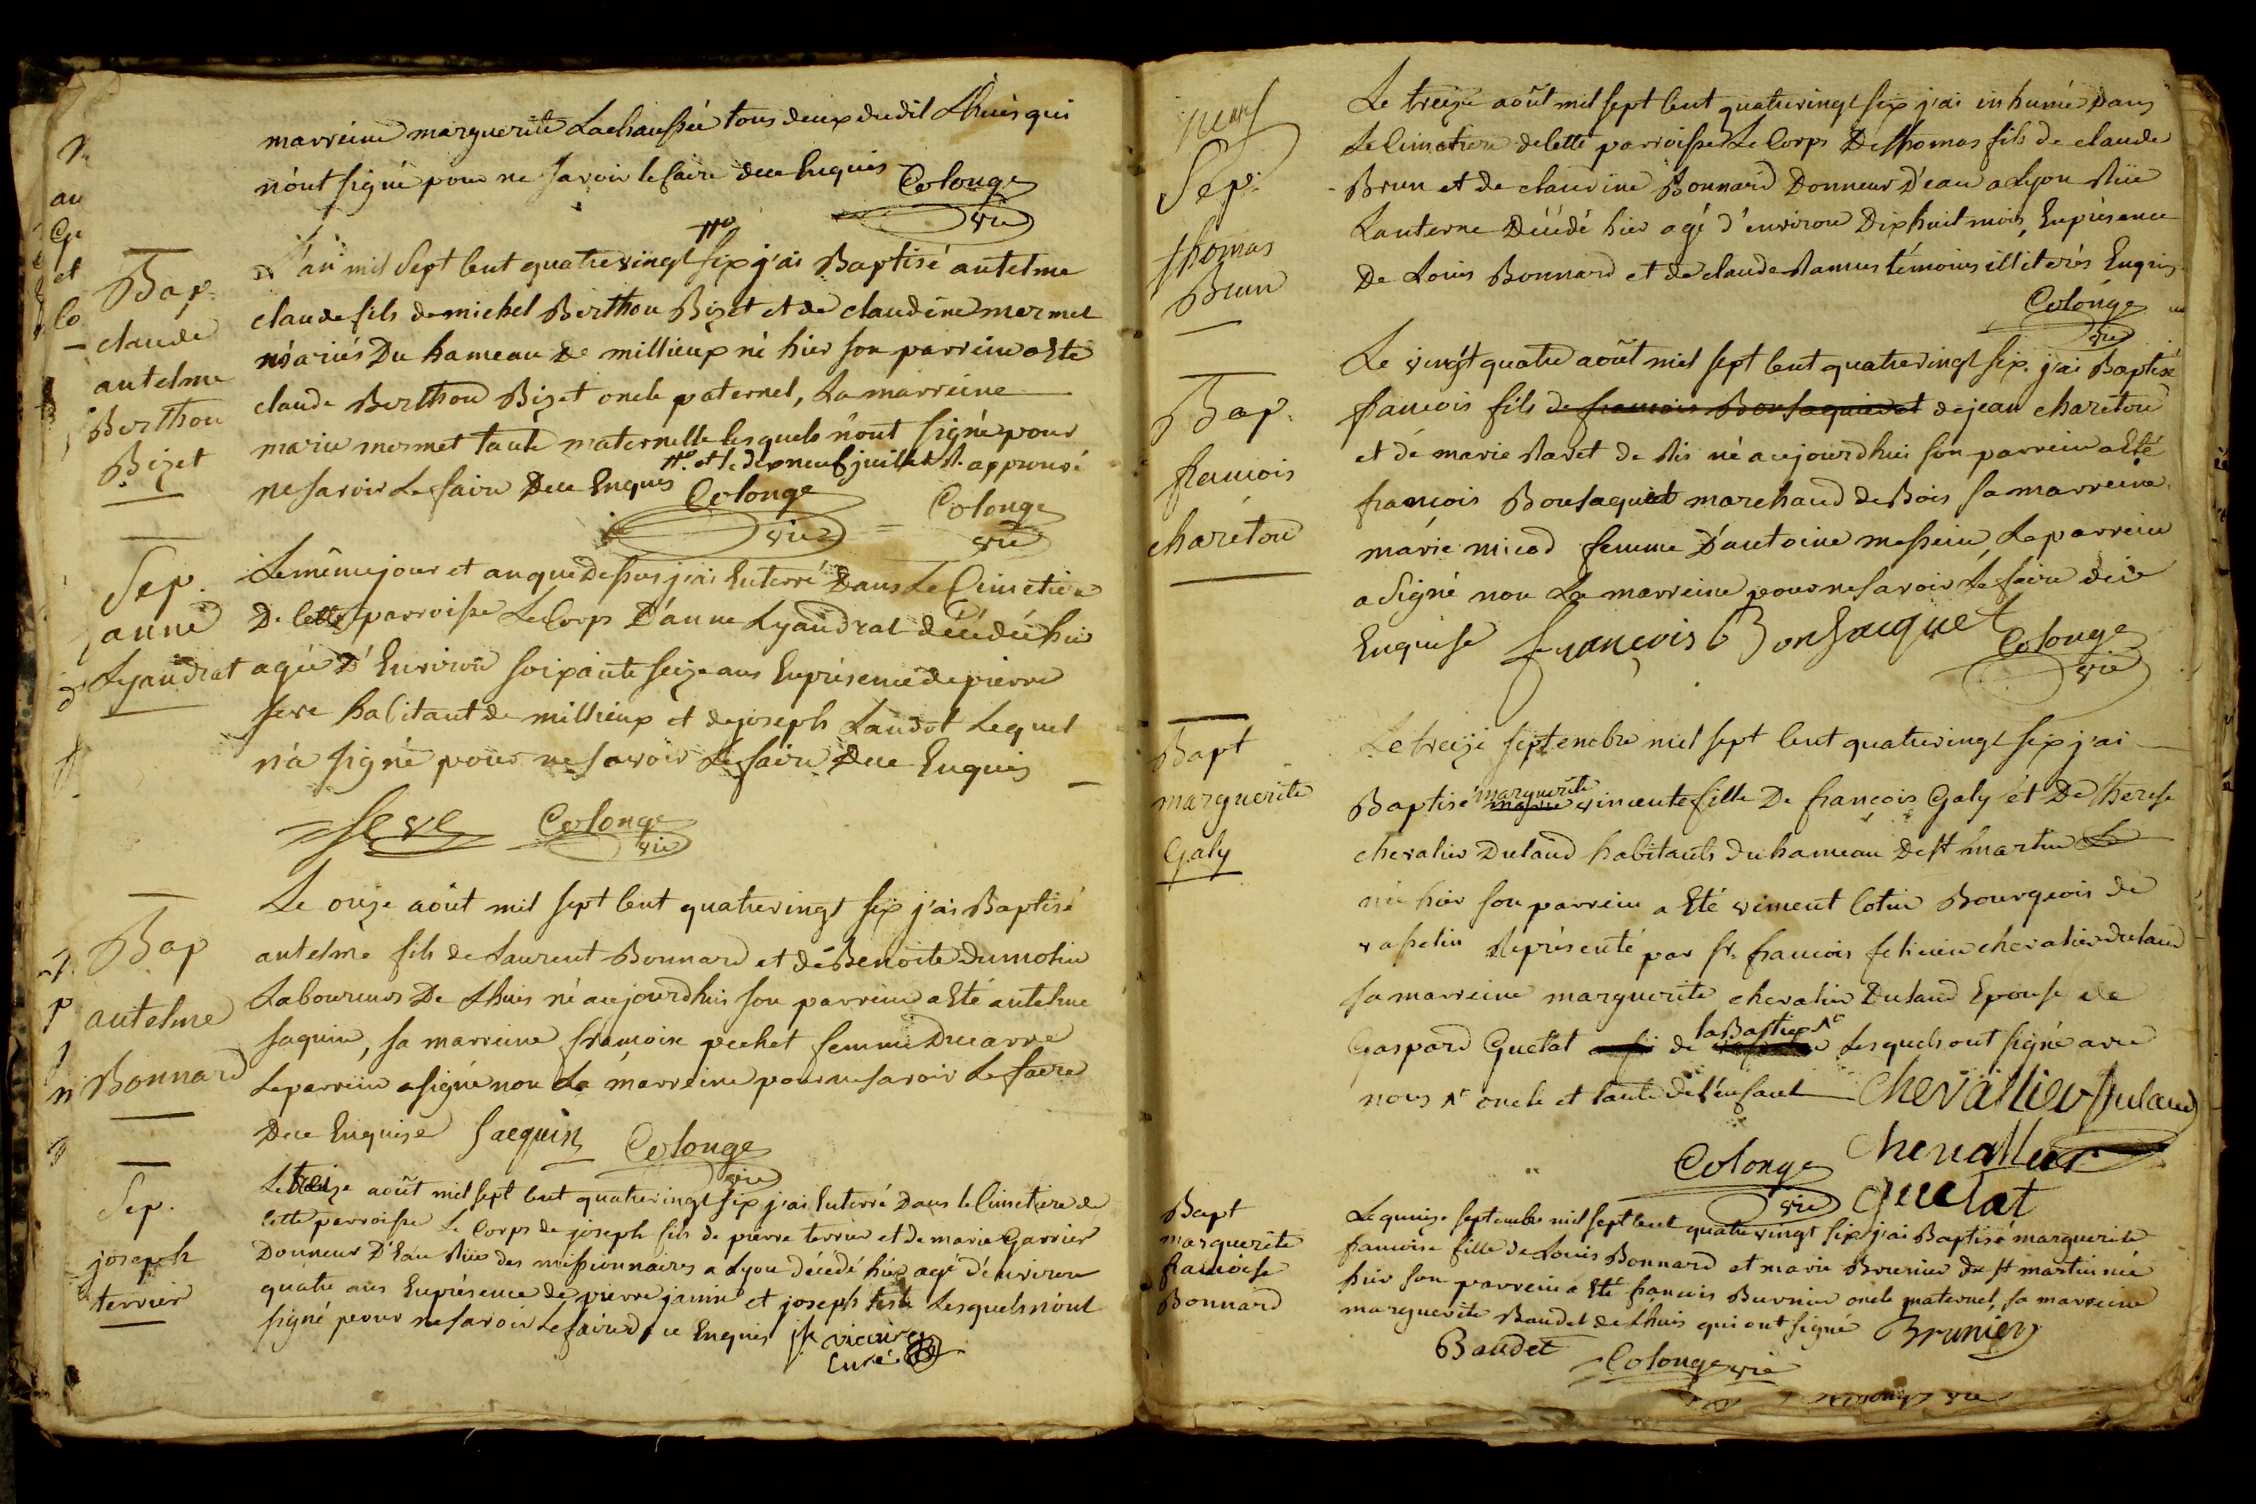 marreine marguerite Lachaussée tous deux dudit Lhuis qui
n'ont signé pour ne savoir le faire dece Enquis Colonge
vic
L'an mil sept Cent quatrevingt six j'ai Baptisé antelme
claude fils de michel Berthou Bizet et de claudine mermet
mariés Du hameau De millieux né hier son parrein a Eté
claude Berthou Bizet oncle paternel, La marreine
marie mermet tante maternelle lesquels n'ont signé pour
ne savoir Le faire Dece Enquis et le dix neuf juillet approuvé
Colonge vic Colonge vic
Bap.
claude
antelme
Berthou
Bizet
Le même jour et an que Dessus j'ai Enterré Dans Le Cimetiere
De Cette parroisse Le Corps D'anne Lyaudrat décédée hier
agée D'Environ soixante seize ans En présence de pierre
seve habitant de millieux et de joseph Laudot Lequel
n'a signé pour ne savoir Le faire Dece Enquis
Seve Colonge
vic
Sep.
anne
Lyaudrat
Le onze août mil sept Cent quatrevingt six j'ai Baptisé
antelme fils de Laurent Bonnard et de Benoite dumolin
Laboureurs De Lhuis né aujourdhui son parrein a Eté antelme
jaquin, sa marreine francoise pechet femme Ducarre
Le parrein a signé non La marreine pour ne savoir Le faire
Dece Enquise Jacquin Colonge
vic
Bap
antelme
Bonnard
Le treize août mil sept Cent quatrevingt six j'ai Enterré Dans le Cimetiere de
Cette parroisse Le Corps de joseph fils de pierre terrier et de marie Garrier
Donneur D'Eau Rüe des missionnaires a Lyon décédé hier agé d'environ
quatre ans En présence de pierre janin et joseph Lesquels n'ont
signé pour ne savoir Le faire de ce Enquis
Curé
Sep.
joseph
terrier
Le treize août mil sept Cent quatrevingt six j'ai inhumé dans
Le Cimetiere de Cette parroisse Le Corps De thomas fils de claude
Brun et de claudine Bonnard Donneur D'eau a Lyon Rüe
Lanterne Décédé hier agé d'environ Dixhuit mois, En présence
De Louis Bonnard et de claude Ramus témoins illiterés Enquis
Colonge
vic
Sep.
thomas
Brun
Le vingt quatre août mil sept Cent quatrevingt six j'ai Baptisé
francois fils de francois Bonsaquiedet de jean chareton
et de marie Ravet de Ris né aujourdhui son parrein a Eté
francois Bonsaquet marchand de Bois sa marreine
marie nicod femme D'antoine messein Le parrein
a signé non La marreine pour ne savoir Le faire dece
Enquise françois Bonsacquet Colonge
vic
Bap.
francois
chareton
Le treize septembre mil sept Cent quatrevingt six j'ai
Baptisé marguerite vincente fille De francois Galy et De therese
chevalier Dulaud habitants du hameau De st martin
née hier son parrein a Eté viment Cotin Bourgeois de
vasselin Représenté par sr. francois felicien chevalier dulaud
sa marreine marguerite chevalier Dulaud Epouse de
Gaspard Guetat de la Bastie Lesquels ont signé avec
nous oncle et tante de l'enfant Chevallier Dulaud
Colonge Chevallier
vic Guetat
Bapt
marguerite
Galy
Le quinze septembre mil sept Cent quatrevingt six j'ai Baptisé marguerite
francoise fille de Louis Bonnard et marie Brunier De st martin née
hier son parrein a Eté francois Burnier oncle maternel, sa marreine
marguerite Baudet de Lhuis qui ont signé Brunier
Baudet Colonge vic
Bapt
marguerite
francoise
Bonnard